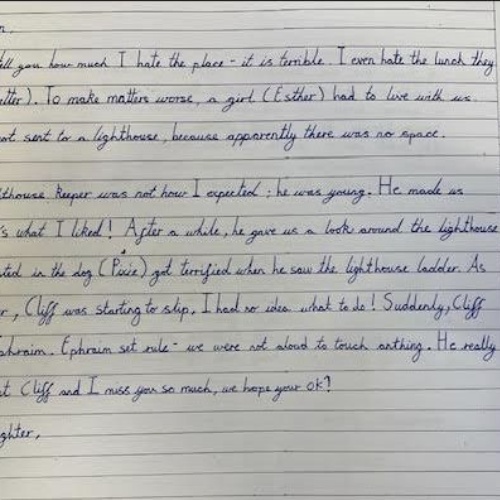 n.
tell you how much I hate the place - it is terrible. I even hate the lunch they
etter). To make matters worse, a girl (Esther) had to live with us.
ot sent to a lighthouse, because apparently there was no space.
thouse keeper was not how I expected; he was young. He made us
's what I liked! After a while, he gave us a look around the lighthouse
ted in the dog (Pixie) got terrified when he saw the lighthouse ladder. As
r, Cliff was starting to slip, I had no idea what to do! Suddenly, Cliff
phraim. Ephraim set rule - we were not aloud to touch anthing. He really
t Cliff and I miss you so much, we hope your ok?
ghter,